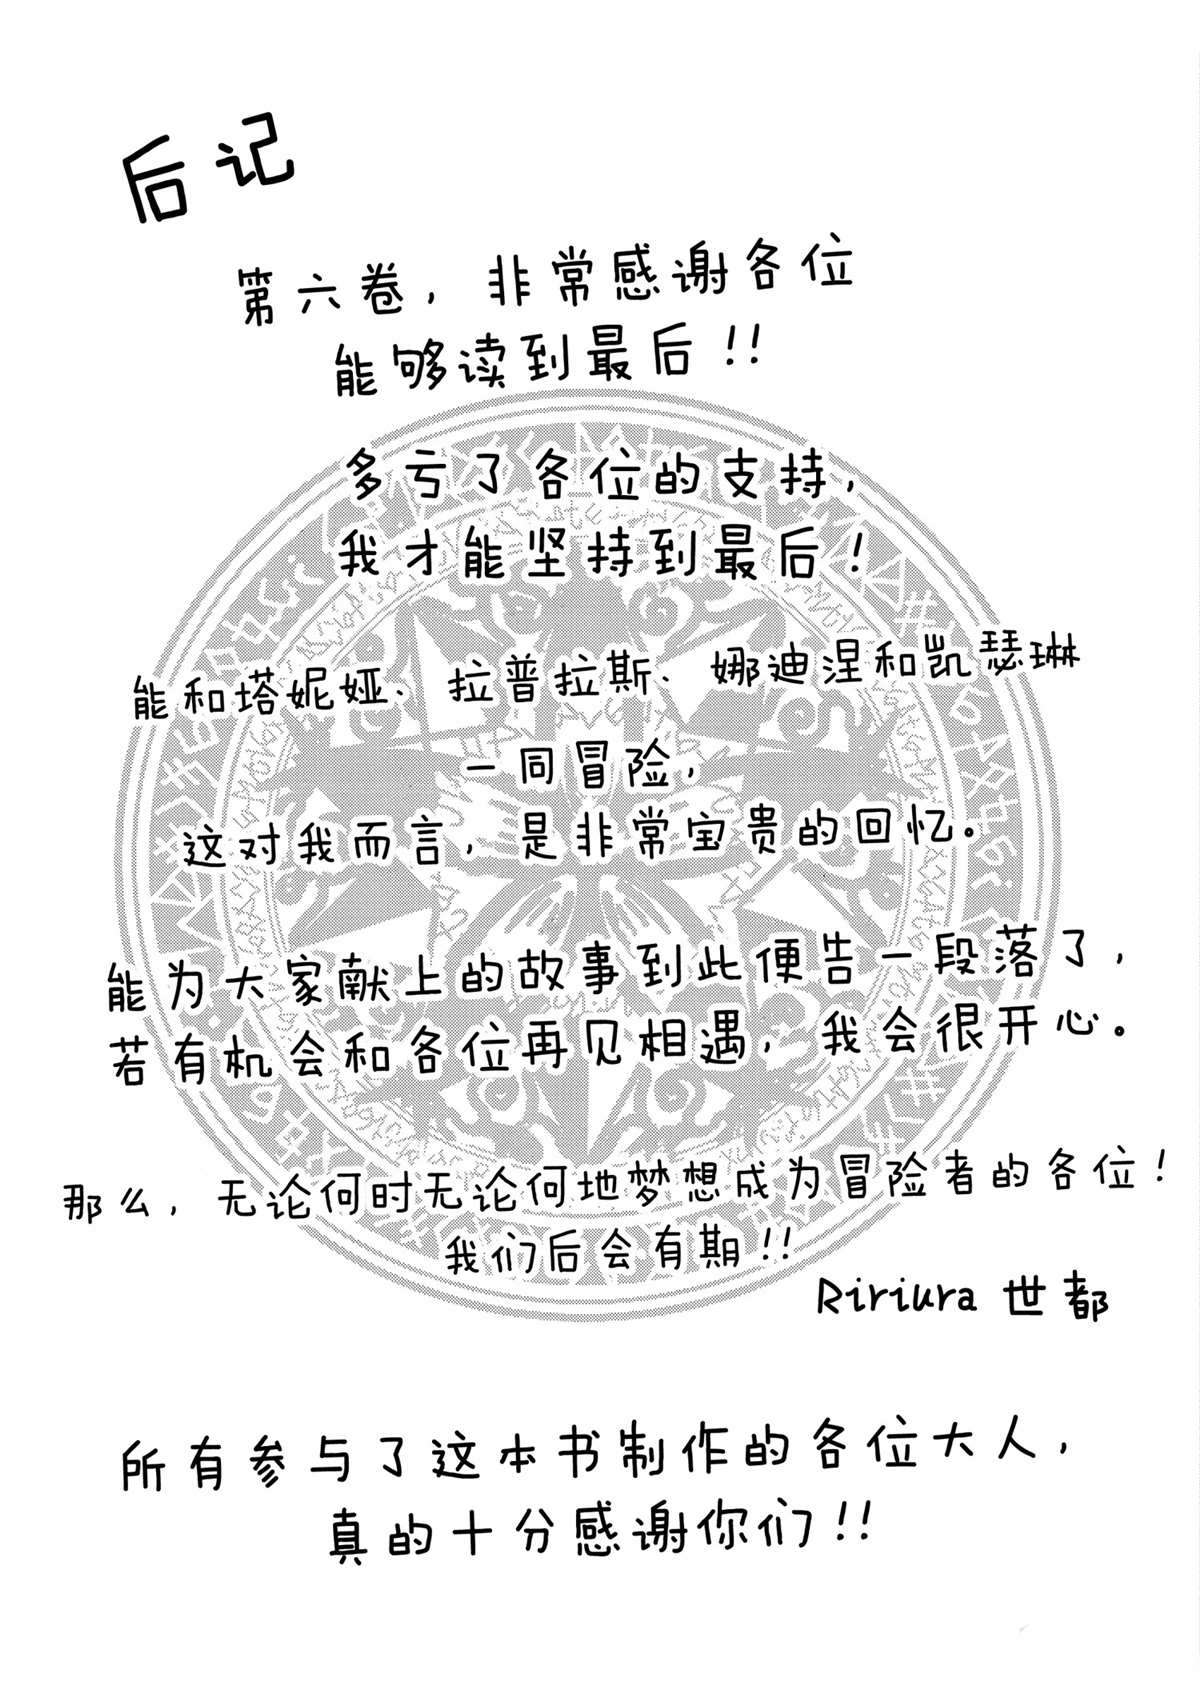 后记
第六卷，非常感谢各位
能够读到最后！！
多亏了各位的支持，
我才能坚持到最后！
能和塔妮娅、拉普拉斯、娜迪涅和凯瑟琳
一同冒险，
这对我而言，是非常宝贵的回忆。
能为大家献上的故事到此便告一段落了，
若有机会和各位再见相遇，我会很开心。
那么，无论何时无论何地梦想成为冒险者的各位！
我们后会有期！！
Ririura 世都
所有参与了这本书制作的各位大人，
真的十分感谢你们！！